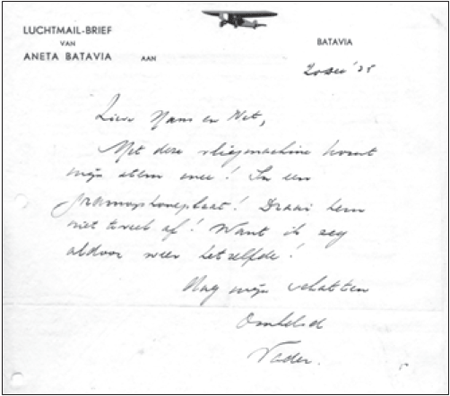 LUCHTMAIL-BRIEF
VAN
ANETA BATAVIA AAN
BATAVIA
20 dec '35
Lieve Hans en Wil,
Met deze vliegmachine komt
mijn stem mee! In een
gramophoneplaat! Draai hem
niet teveel af! Want ik zeg
aldoor weer hetzelfde!
Dag mijn schatten
Omhelsd
Vader.